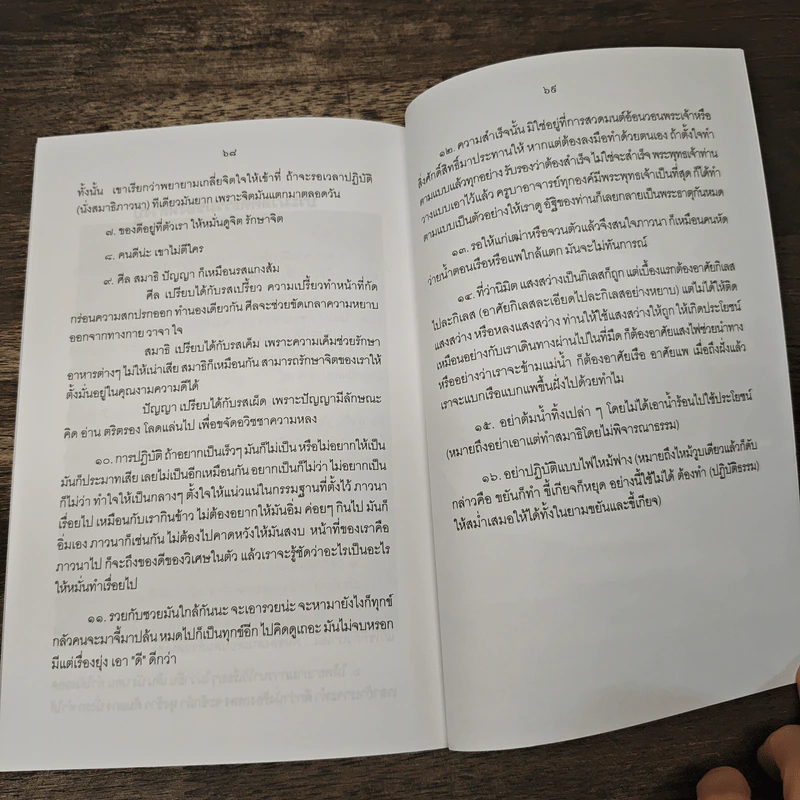 ๖๘
ทั้งนั้น เขาเรียกว่าพยายามเกลี่ยจิตใจให้เข้าที่ ถ้าจะรอเวลาปฏิบัติ
(นั่งสมาธิภาวนา) ทีเดียวมันยาก เพราะจิตมันแตกมาตลอดวัน
๗. ของดีอยู่ที่ตัวเรา ให้หมั่นดูจิต รักษาจิต
๘. คนดีน่ะ เขาไม่ตีใคร
๙. ศีล สมาธิ ปัญญา ก็เหมือนรสแกงส้ม
ศีล เปรียบได้กับรสเปรี้ยว ความเปรี้ยวทำหน้าที่กัด
กร่อนความสกปรกออก ทำนองเดียวกัน ศีลจะช่วยขัดเกลาความหยาบ
ออกจากทางกาย วาจา ใจ
สมาธิ เปรียบได้กับรสเค็ม เพราะความเค็มช่วยรักษา
อาหารต่างๆ ไม่ให้เน่าเสีย สมาธิก็เหมือนกัน สามารถรักษาจิตของเราให้
ตั้งมั่นอยู่ในคุณงามความดีได้
ปัญญา เปรียบได้กับรสเผ็ด เพราะปัญญามีลักษณะ
คิด อ่าน ตริตรอง โลดแล่นไป เพื่อขจัดอวิชชาความหลง
๑๐. การปฏิบัติ ถ้าอยากเป็นเร็วๆ มันก็ไม่เป็น หรือไม่อยากให้เป็น
มันก็ประมาทเสีย เลยไม่เป็นอีกเหมือนกัน อยากเป็นก็ไม่ว่า ไม่อยากเป็น
ก็ไม่ว่า ทำใจให้เป็นกลางๆ ตั้งใจให้แน่วแน่ในกรรมฐานที่ตั้งไว้ ภาวนา
เรื่อยไป เหมือนกับเรากินข้าว ไม่ต้องอยากให้มันอิ่ม ค่อยๆ กินไป มันก็
อิ่มเอง ภาวนาก็เช่นกัน ไม่ต้องไปคาดหวังให้มันสงบ หน้าที่ของเราคือ
ภาวนาไป ก็จะถึงของดีของวิเศษในตัว แล้วเราจะรู้ชัดว่าอะไรเป็นอะไร
ให้หมั่นทำเรื่อยไป
๑๑. รวยกับซวยมันใกล้กันนะ จะเอารวยน่ะ จะหามายังไงก็ทุกข์
กลัวคนจะมาจี้มาปล้น หมดไปก็เป็นทุกข์อีก ไปคิดดูเถอะ มันไม่จบหรอก
มีแต่เรื่องยุ่ง เอา "ดี" ดีกว่า
๖๙
๑๒. ความสำเร็จนั้น มิใช่อยู่ที่การสวดมนต์อ้อนวอนพระเจ้าหรือ
สิ่งศักดิ์สิทธิ์มาประทานให้ หากแต่ต้องลงมือทำด้วยตนเอง ถ้าตั้งใจทำ
ตามแบบแล้วทุกอย่าง รับรองว่าต้องสำเร็จ ไม่ใช่จะสำเร็จ พระพุทธเจ้าท่าน
วางแบบเอาไว้แล้ว ครูบาอาจารย์ทุกองค์มีพระพุทธเจ้าเป็นที่สุด ก็ได้ทำ
ตามแบบเป็นตัวอย่างให้เราดู อัฐิของท่านก็เลยกลายเป็นพระธาตุกันหมด
๑๓. รอให้แก่เฒ่าหรือจวนตัวแล้วจึงสนใจภาวนา ก็เหมือนคนหัด
ว่ายน้ำตอนเรือหรือแพใกล้แตก มันจะไม่ทันการณ์
๑๔. ที่ว่านิมิต แสงสว่างเป็นกิเลสก็ถูก แต่เบื้องแรกต้องอาศัยกิเลส
ไปละกิเลส (อาศัยกิเลสละเอียดไปละกิเลสอย่างหยาบ) แต่ไม่ได้ให้ติด
แสงสว่าง หรือหลงแสงสว่าง ท่านให้ใช้แสงสว่างให้ถูก ให้เกิดประโยชน์
เหมือนอย่างกับเราเดินทางผ่านไปในที่มืด ก็ต้องอาศัยแสงไฟช่วยนำทาง
หรืออย่างว่าเราจะข้ามแม่น้ำ ก็ต้องอาศัยเรือ อาศัยแพ เมื่อถึงฝั่งแล้ว
เราจะแบกเรือแบกแพขึ้นฝั่งไปด้วยทำไม
๑๕. อย่าต้มน้ำทิ้งเปล่า ๆ โดยไม่ได้เอาน้ำร้อนไปใช้ประโยชน์
(หมายถึงอย่าเอาแต่ทำสมาธิโดยไม่พิจารณาธรรม)
๑๖. อย่าปฏิบัติแบบไฟไหม้ฟาง (หมายถึงไหม้วูบเดียวแล้วก็ดับ
กล่าวคือ ขยันก็ทำ ขี้เกียจก็หยุด อย่างนี้ใช้ไม่ได้ ต้องทำ (ปฏิบัติธรรม)
ให้สม่ำเสมอให้ได้ทั้งในยามขยันและขี้เกียจ)